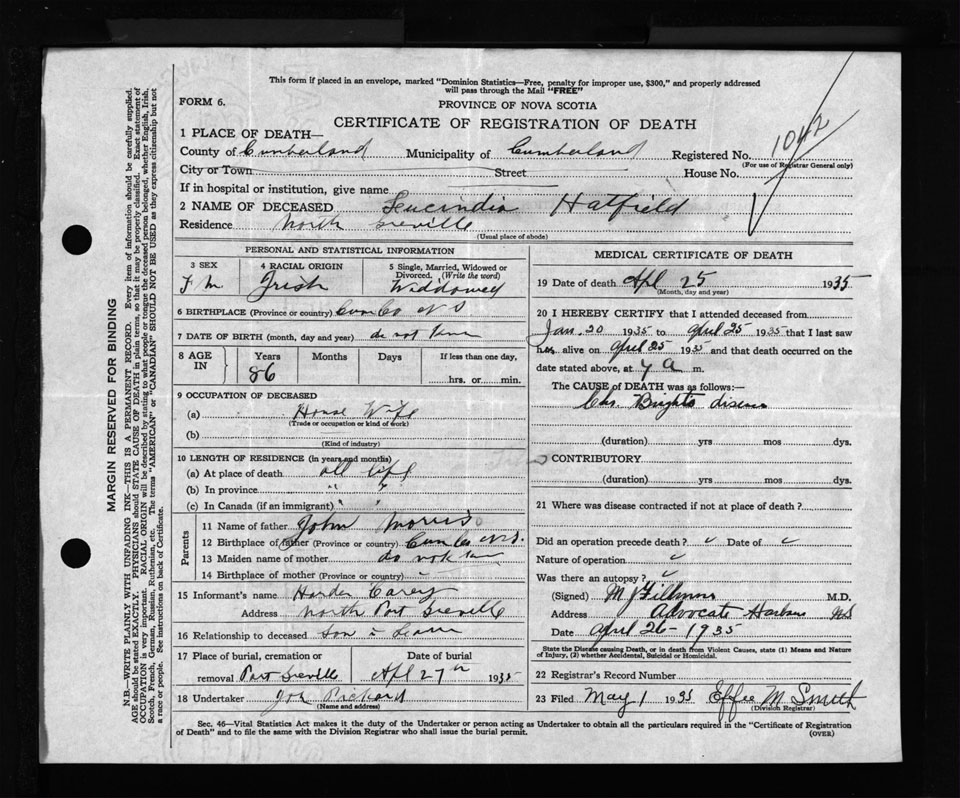 This form if placed in an envelope, marked "Dominion Statistics—Free, penalty for improper use, $300," and properly addressed
will pass through the Mail "FREE"
FORM 6.
PROVINCE OF NOVA SCOTIA
CERTIFICATE OF REGISTRATION OF DEATH
1 PLACE OF DEATH—
County of Cumberland Municipality of Cumberland Registered No. 1042
(For use of Registrar General only)
City or Town Street House No.
If in hospital or institution, give name
2 NAME OF DECEASED Hatfield
Residence North Greville
(Usual place of abode)
PERSONAL AND STATISTICAL INFORMATION
3 SEX 4 RACIAL ORIGIN 5 Single, Married, Widowed or
Divorced. (Write the word)
F M Irish Widdowed
6 BIRTHPLACE (Province or country) Cum Co N S
7 DATE OF BIRTH (month, day and year) do not
8 AGE IN Years Months Days If less than one day,
86
hrs. or min.
9 OCCUPATION OF DECEASED
(a) House Wife
(Trade or occupation or kind of work)
(b)
(Kind of industry)
10 LENGTH OF RESIDENCE (in years and months)
(a) At place of death all life
(b) In province " "
(c) In Canada (if an immigrant) " "
Parents
11 Name of father John Morris
12 Birthplace of father (Province or country) Cum Co N.S.
13 Maiden name of mother do not
14 Birthplace of mother (Province or country)
15 Informant's name Carey
Address North Port Greville
16 Relationship to deceased Son
17 Place of burial, cremation or Date of burial
removal Port Greville Apl 27th 1935
18 Undertaker Pichard
(Name and address)
MEDICAL CERTIFICATE OF DEATH
19 Date of death Apl 25 1935
(Month, day and year)
20 I HEREBY CERTIFY that I attended deceased from
Jan. 20 1935 to April 25 1935 that I last saw
her alive on April 25 1935 and that death occurred on the
date stated above, at 7 a m.
The CAUSE of DEATH was as follows:—
Chr. Brights disease
(duration) yrs mos dys.
CONTRIBUTORY
(duration) yrs mos dys.
21 Where was disease contracted if not at place of death?
Did an operation precede death? Date of
Nature of operation
Was there an autopsy?
(Signed) M.D.
Address Advocate Harbour NS
Date April 26 - 1935
State the Disease causing Death, or in death from Violent Causes, state (1) Means and Nature
of Injury, (2) whether Accidental, Suicidal or Homicidal.
22 Registrar's Record Number
23 Filed May 1 1935 Effie M Smith
(Division Registrar)
Sec. 46—Vital Statistics Act makes it the duty of the Undertaker or person acting as Undertaker to obtain all the particulars required in the "Certificate of Registration
of Death" and to file the same with the Division Registrar who shall issue the burial permit.
(OVER)
MARGIN RESERVED FOR BINDING
N.B.—WRITE PLAINLY WITH UNFADING INK—THIS IS A PERMANENT RECORD. Every item of information should be carefully supplied.
AGE should be stated EXACTLY. PHYSICIANS should STATE CAUSE OF DEATH in plain terms, so that it may be properly classified. Exact statement of
OCCUPATION is very important. RACIAL ORIGIN will be described by stating to what people or tongue the deceased person belonged, whether English, Irish,
Scotch, French, German, Russian, Ruthenian, etc. The terms "AMERICAN" or "CANADIAN" SHOULD NOT BE USED as they express citizenship but not
a race or people. See instructions on back of Certificate.